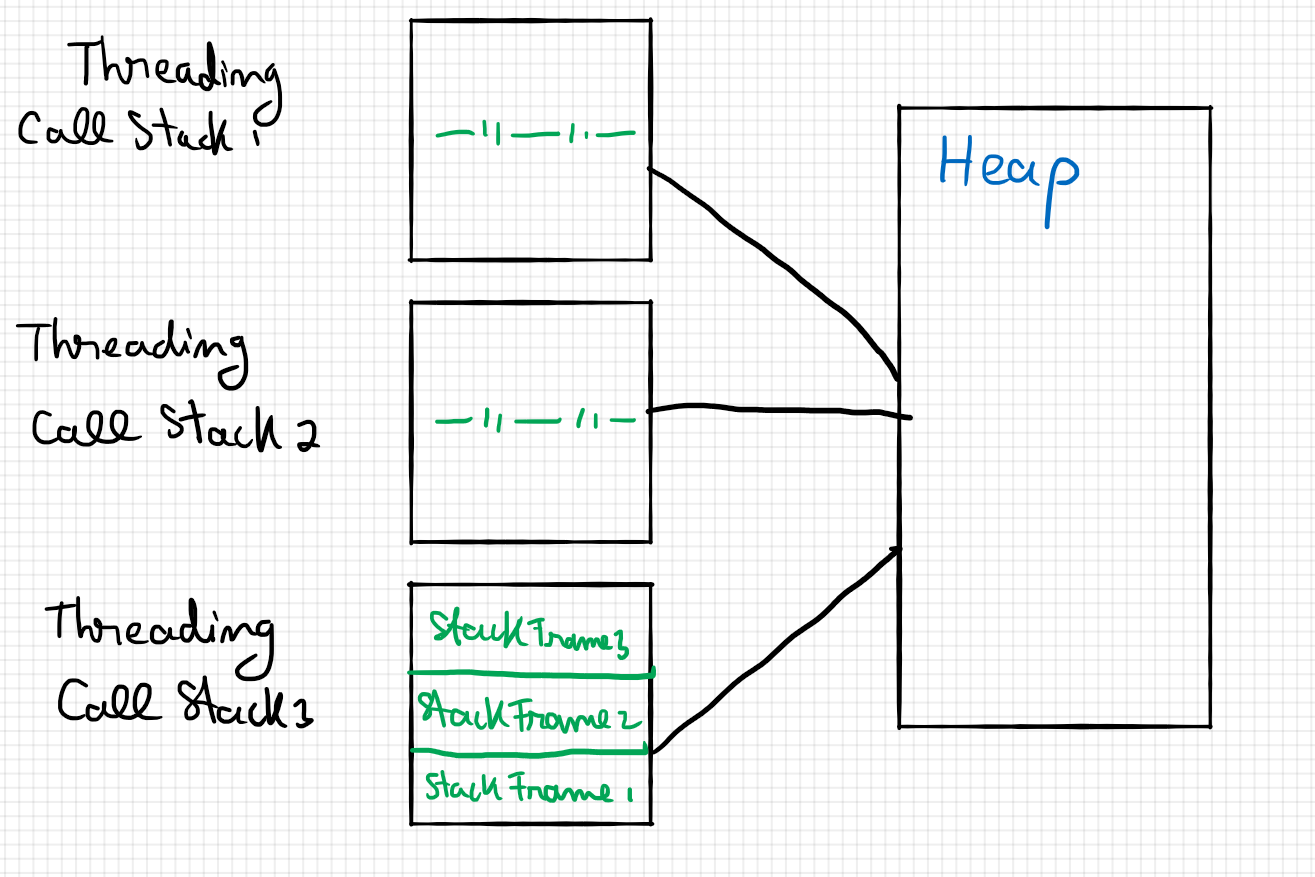 Threading
Call Stack 1
—11—11—
Heap
Threading
Call Stack 2
—11—11—
Threading
Call Stack 3
Stack Frame 3
Stack Frame 2
Stack Frame 1